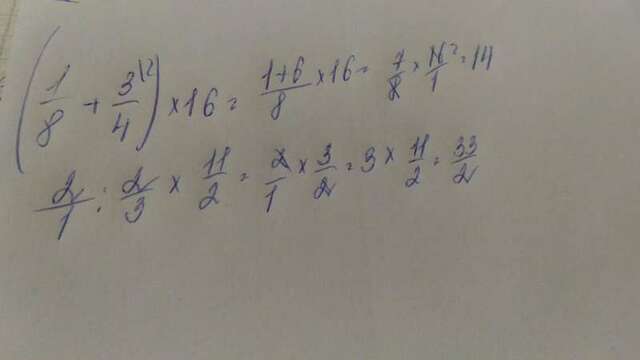 (1/8 + 3/4 |2) × 16 = 1+6/8 × 16 = 7/8 × 16²/1 = 14
2/1 : 2/3 × 11/2 = 2/1 × 3/2 = 3 × 11/2 = 33/2